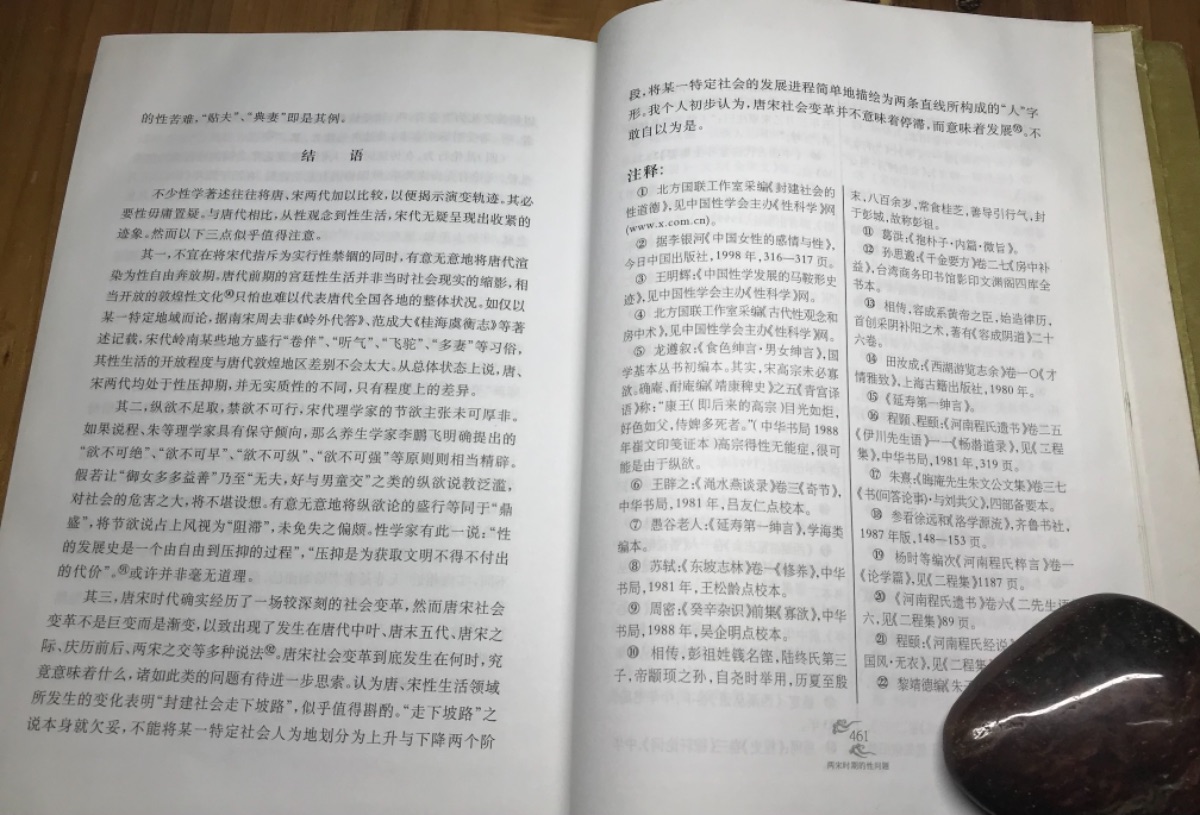 的性苦难，“贴夫”、“典妻”即是其例。
结　语
不少性学著述往往将唐、宋两代加以比较，以便揭示演变轨迹。其必
要性毋庸置疑。与唐代相比，从性观念到性生活，宋代无疑呈现出收紧的
迹象。然而以下三点似乎值得注意。
其一，不宜在将宋代指斥为实行性禁锢的同时，有意无意地将唐代渲
染为性自由奔放期，唐代前期的宫廷性生活并非当时社会现实的缩影，相
当开放的敦煌性文化只怕也难以代表唐代全国各地的整体状况。如仅以
某一特定地域而论，据南宋周去非《岭外代答》、范成大《桂海虞衡志》等著
述记载，宋代岭南某些地方盛行“卷伴”、“听气”、“飞驼”、“多妻”等习俗，
其性生活的开放程度与唐代敦煌地区差别不会太大。从总体状态上说，唐、
宋两代均处于性压抑期，并无实质性的不同，只有程度上的差异。
其二，纵欲不足取，禁欲不可行，宋代理学家的节欲主张未可厚非。
如果说程、朱等理学家具有保守倾向，那么养生学家李鹏飞明确提出的
“欲不可绝”、“欲不可早”、“欲不可纵”、“欲不可强”等原则则相当精辟。
假若让“御女多多益善”乃至“无夫，好与男童交”之类的纵欲说教泛滥，
对社会的危害之大，将不堪设想。有意无意地将纵欲论的盛行等同于“鼎
盛”，将节欲说占上风视为“阻滞”，未免失之偏颇。性学家有此一说：“性
的发展史是一个由自由到压抑的过程”，“压抑是为获取文明不得不付出
的代价”。或许并非毫无道理。
其三，唐宋时代确实经历了一场较深刻的社会变革，然而唐宋社会
变革不是巨变而是渐变，以致出现了发生在唐代中叶、唐末五代、唐宋之
际、庆历前后、两宋之交等多种说法。唐宋社会变革到底发生在何时，究
竟意味着什么，诸如此类的问题有待进一步思索。认为唐、宋性生活领域
所发生的变化表明“封建社会走下坡路”，似乎值得斟酌。“走下坡路”之
说本身就欠妥，不能将某一特定社会人为地划分为上升与下降两个阶
段，将某一特定社会的发展进程简单地描绘为两条直线所构成的“人”字
形。我个人初步认为，唐宋社会变革并不意味着停滞，而意味着发展。不
敢自以为是。
注释：
① 北方国联工作室采编《封建社会的
性道德》，见中国性学会主办《性科学》网
(www.x.com.cn)。
② 据李银河《中国女性的感情与性》，
今日中国出版社，1998年，316—317页。
③ 王明辉：《中国性学发展的马鞍形史
迹》，见中国性学会主办《性科学》网。
④ 北方国联工作室采编《古代性观念和
房中术》，见中国性学会主办《性科学》网。
⑤ 龙遵叙：《食色绅言·男女绅言》，国
学基本丛书初编本。其实，宋高宗未必寡
欲。确庵、耐庵编《靖康稗史》之五《青宫译
语》称：“康王（即后来的高宗）目光如炬，
好色如父，侍婢多死者。”（中华书局1988
年崔文印笺证本）高宗得性无能症，很可
能是由于纵欲。
⑥ 王辟之：《渑水燕谈录》卷三《奇节》，
中华书局，1981年，吕友仁点校本。
⑦ 愚谷老人：《延寿第一绅言》，学海类
编本。
⑧ 苏轼：《东坡志林》卷一《修养》，中华
书局，1981年，王松龄点校本。
⑨ 周密：《癸辛杂识》前集《寡欲》，中华
书局，1988年，吴企明点校本。
⑩ 相传，彭祖姓篯名铿，陆终氏第三
子，帝颛顼之孙，自尧时举用，历夏至殷
末，八百余岁，常食桂芝，善导引行气，封
于彭城，故称彭祖。
⑪ 葛洪：《抱朴子·内篇·微旨》。
⑫ 孙思邈：《千金要方》卷二七《房中补
益》，台湾商务印书馆影印文渊阁四库全
书本。
⑬ 相传，容成系黄帝之臣，始造律历，
首创采阴补阳之术，著有《容成阴道》二十
六卷。
⑭ 田汝成：《西湖游览志余》卷一〇《才
情雅致》，上海古籍出版社，1980年。
⑮ 《延寿第一绅言》。
⑯ 程颢、程颐：《河南程氏遗书》卷二五
《伊川先生语》一一《畅潜道录》，见《二程
集》，中华书局，1981年，319页。
⑰ 朱熹：《晦庵先生朱文公文集》卷三七
《书（问答论事）·与刘共父》，四部备要本。
⑱ 参看徐远和《洛学源流》，齐鲁书社，
1987年版，148—153页。
⑲ 杨时等编次《河南程氏粹言》卷一
《论学篇》，见《二程集》1187页。
⑳ 《河南程氏遗书》卷六《二先生语
六，见《二程集》89页。
㉑ 程颐：《河南程氏经说
国风·无衣》，见《二程集
㉒ 黎靖德编《朱子
461
两宋时期的性问题